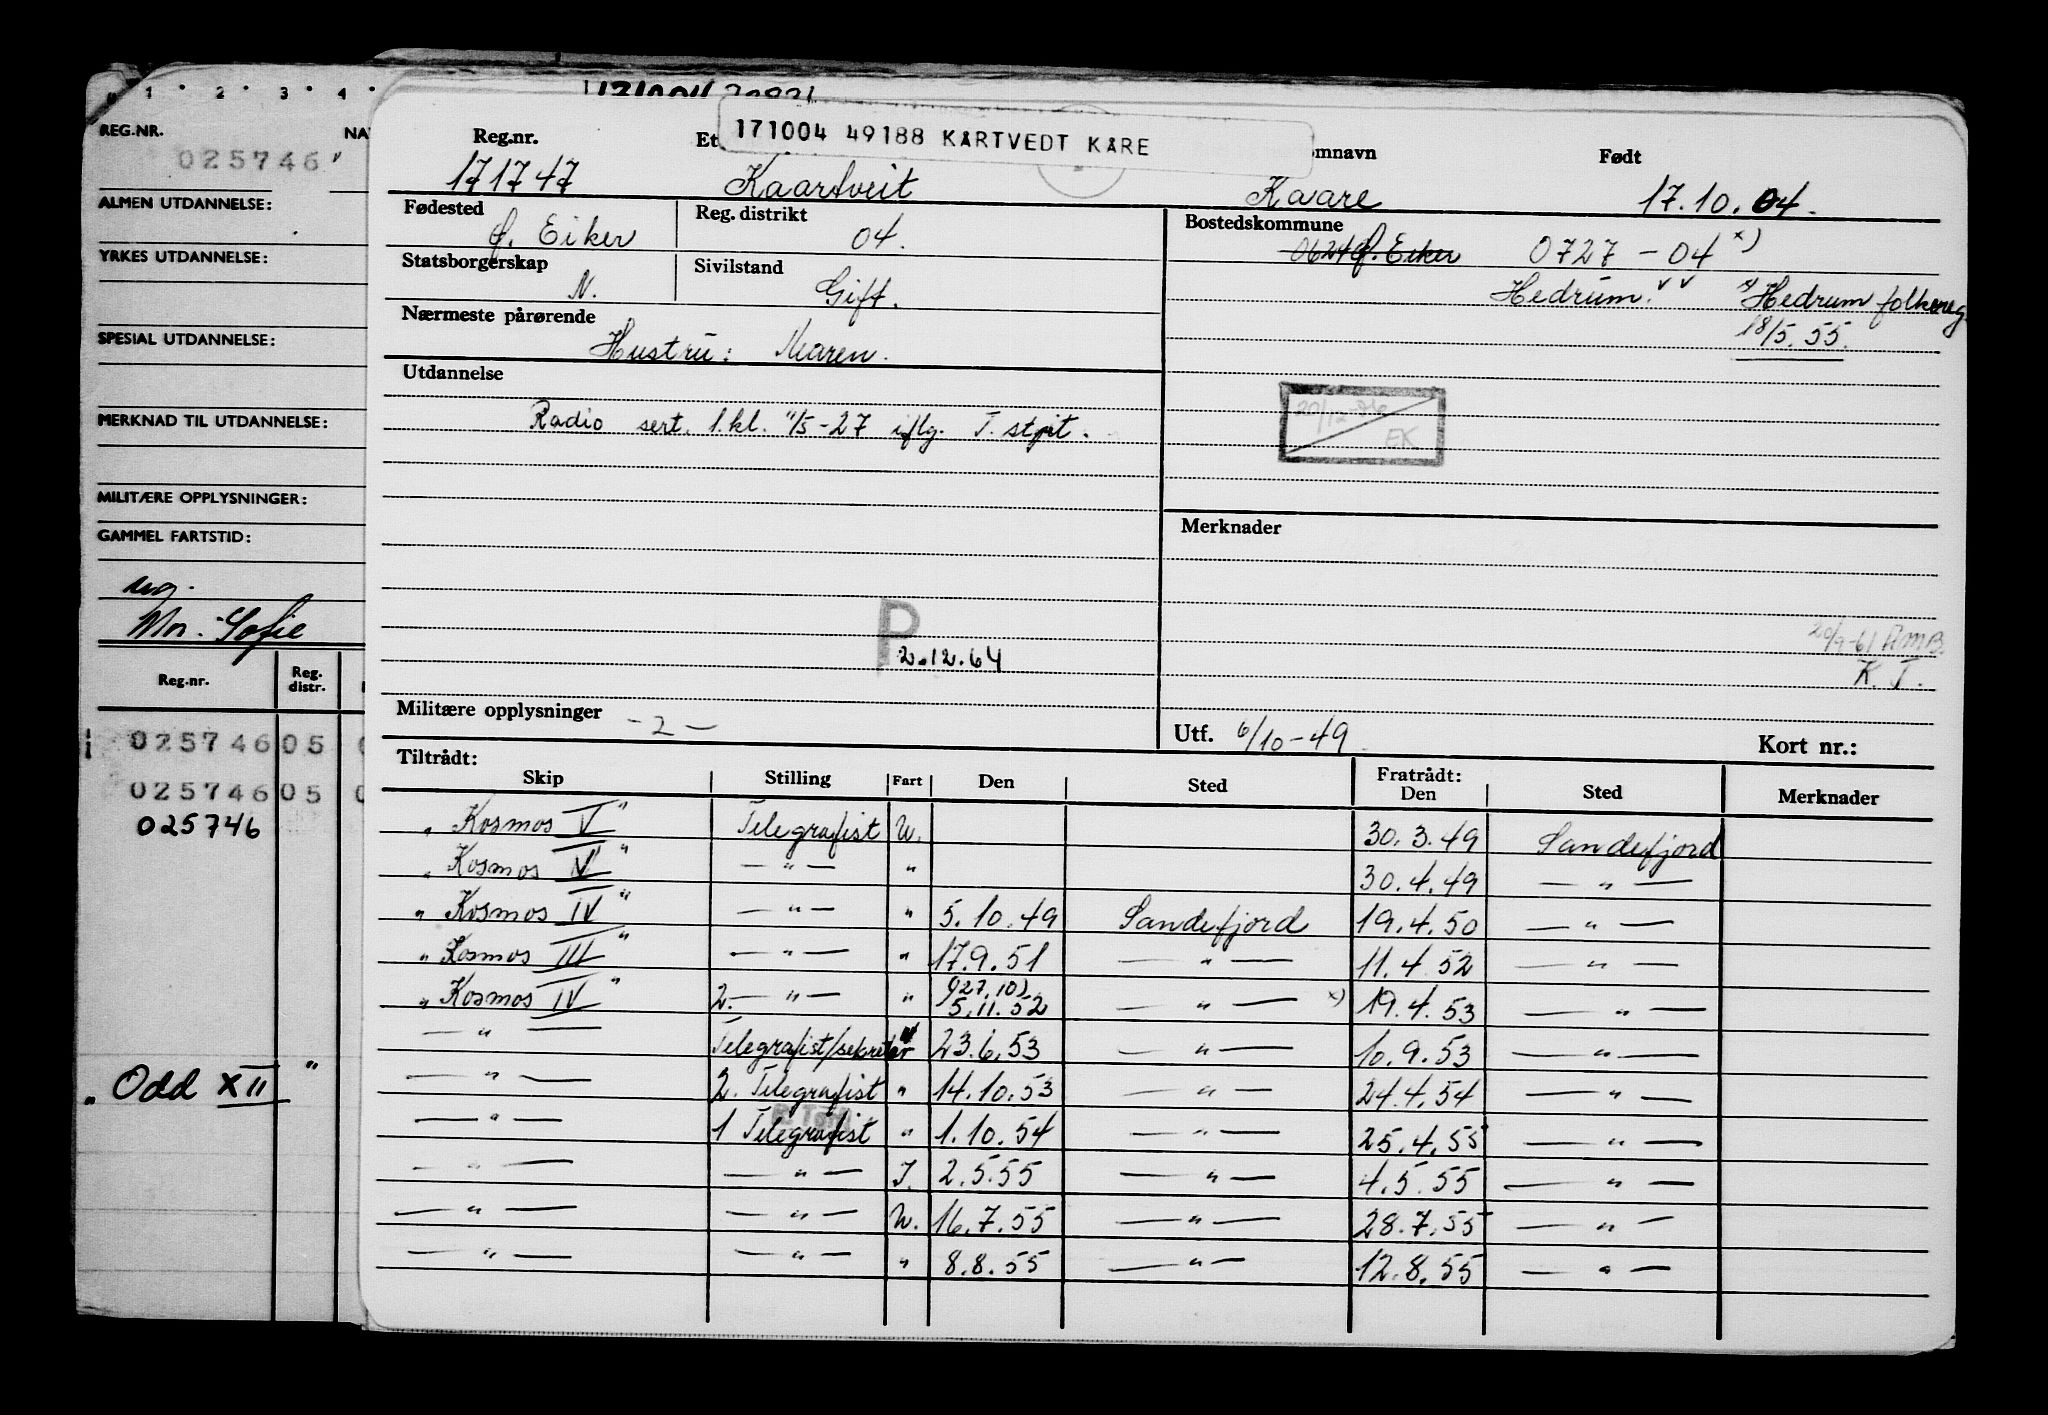 1 · 2 · 3 · 4 ·
REG.NR. NA
025746
ALMEN UTDANNELSE:
YRKES UTDANNELSE:
SPESIAL UTDANNELSE:
MERKNAD TIL UTDANNELSE:
MILITÆRE OPPLYSNINGER:
GAMMEL FARTSTID:
Sofie
Reg.nr. Reg. distr.
025746 05
025746 05
025746
„ Odd XII "
171004 49188 KARTVEDT KÅRE
Reg.nr. Et omnavn Født
171747 Kaartveit Kaare 17.10.04.
Fødested Reg. distrikt Bostedskommune
Ø. Eiker 04. 0624 Ø. Eiker 0727 - 04 x)
Statsborgerskap Sivilstand
N. Gift. Hedrum. v v x) Hedrum folkereg.
Nærmeste pårørende 18/5. 55.
Hustru: Maren.
Utdannelse
Radio sert. 1.kl. 11/5-27 iflg. T. stpit.
20/12
EK
Merknader
P
2.12.64
20/9-61 AMB.
K. J.
Militære opplysninger - 2 - Utf. 6/10-49 Kort nr.:
Tiltrådt: Fratrådt:
Skip Stilling Fart Den Sted Den Sted Merknader
„ Kosmos V " Telegrafist W. 30.3.49 Sandefjord
„ Kosmos V " — " — " 30.4.49 — " —
„ Kosmos IV " — " — " 5.10.49 Sandefjord 19.4.50 — " —
„ Kosmos III " — " — " 17.9.51 — " — 11.4.52 — " —
„ Kosmos IV " 2. — " — " (27.10) 5.11.52 — " — x) 19.4.53 — " —
— " — Telegrafist/sekretær " 23.6.53 — " — 10.9.53 — " —
— " — 2. Telegrafist " 14.10.53 — " — 24.4.54 — " —
— " — 1 Telegrafist " 1.10.54 — " — 25.4.55 — " —
— " — — " — J. 2.5.55 — " — 4.5.55 — " —
— " — — " — W. 16.7.55 — " — 28.7.55 — " —
— " — — " — " 8.8.55 — " — 12.8.55 — " —